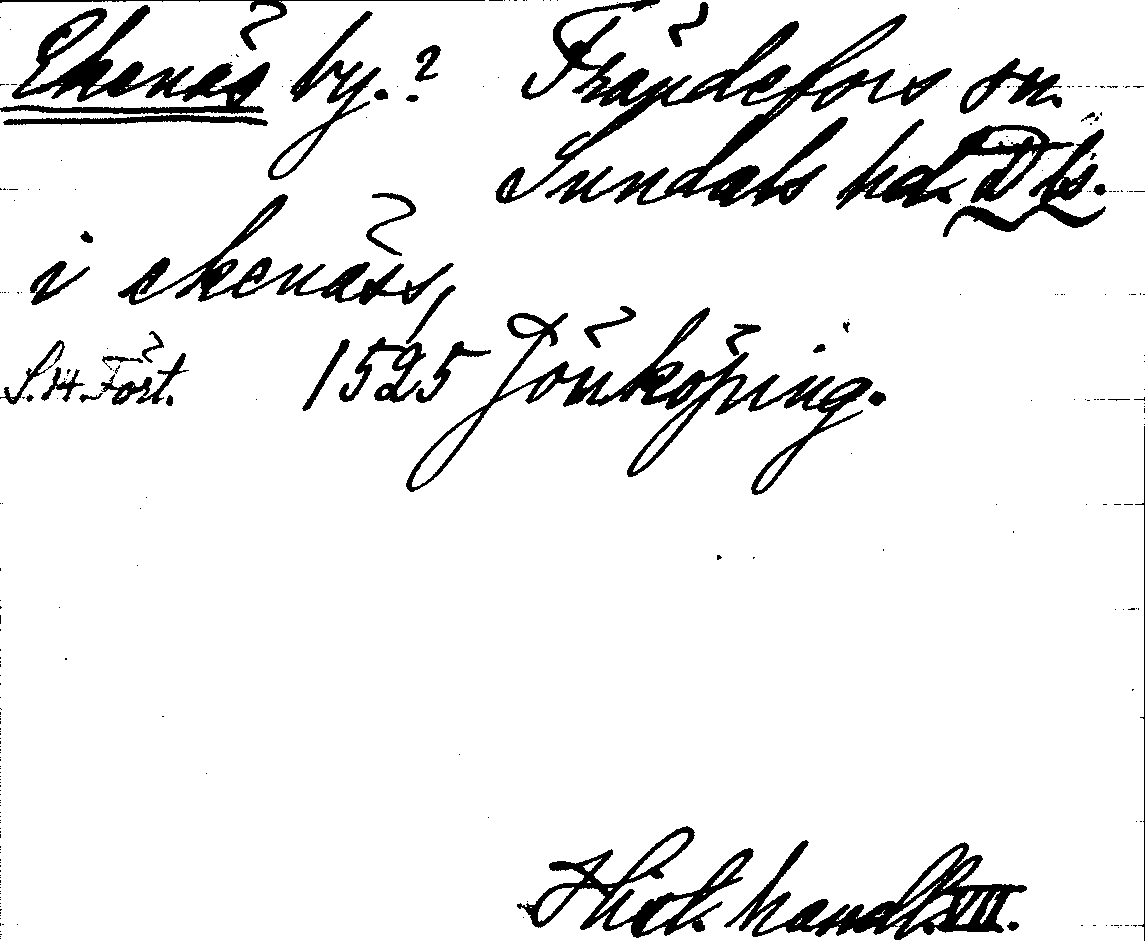 Ekenäs by.? Frändefors sn.
Sundals hd. Dls.
i ekenäss,
S. 14. Fört. 1525 Jönköping.
Hist. handl. VII.